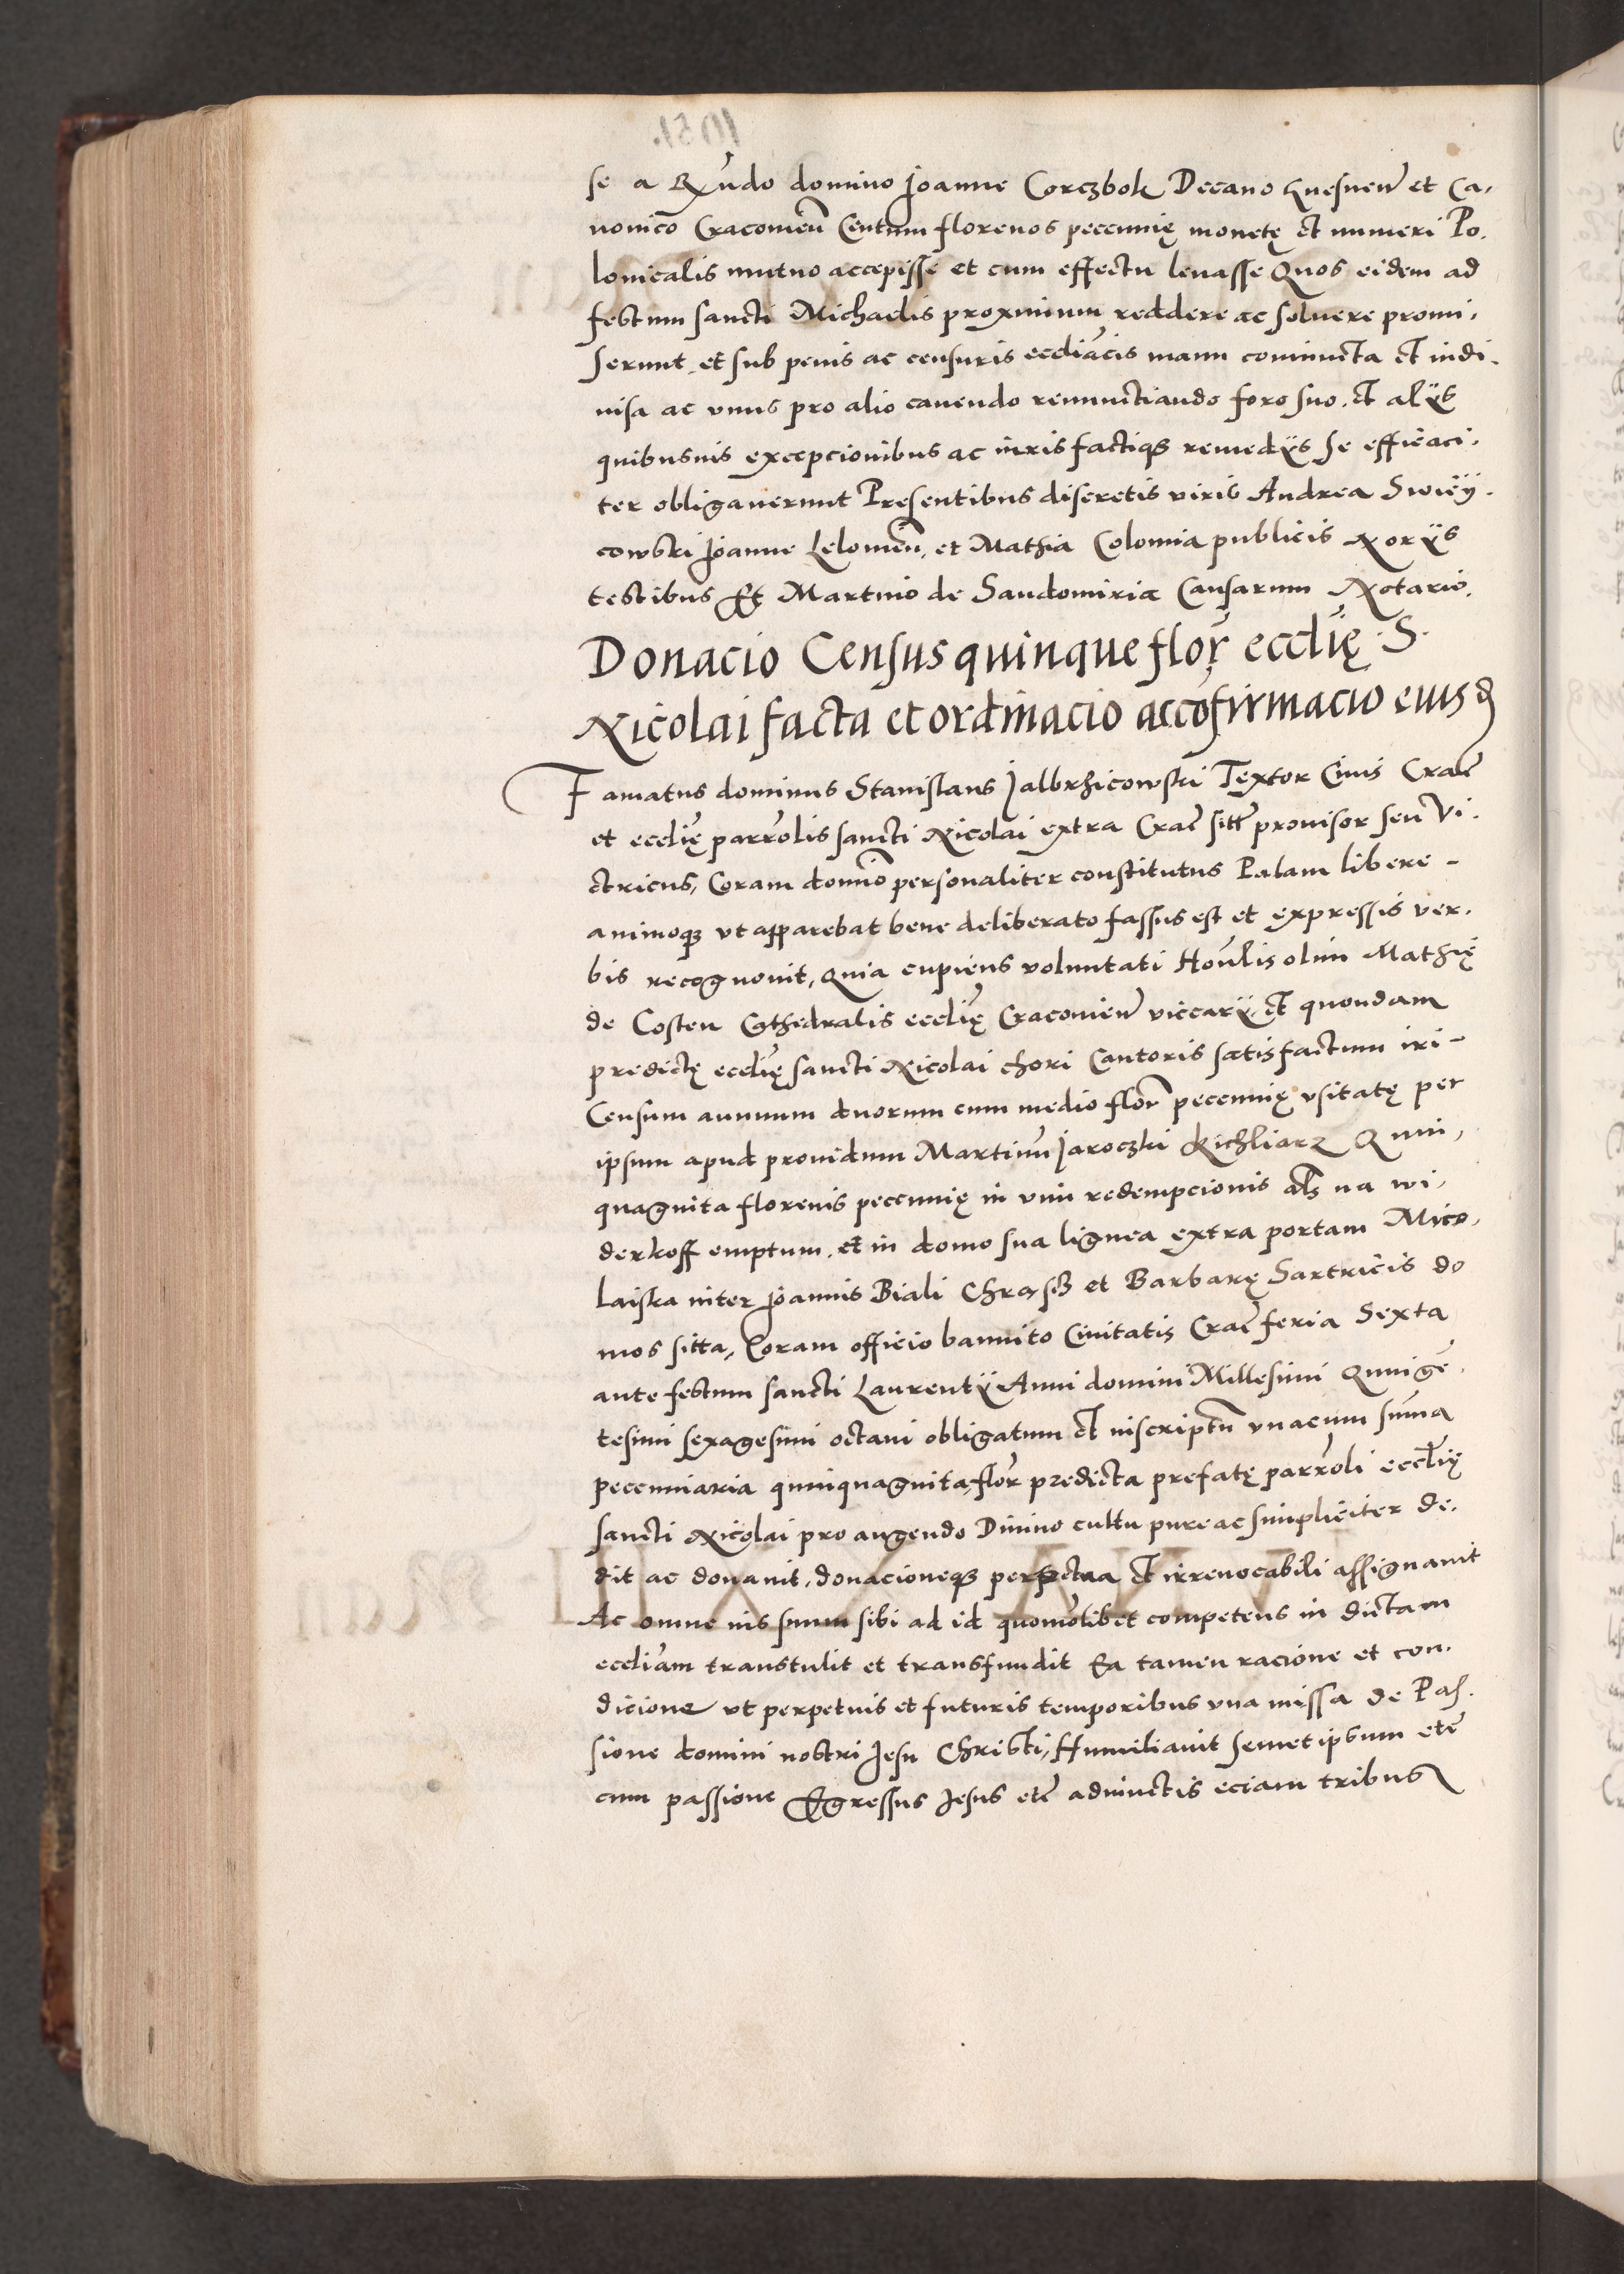 se a Rṽndo domino Joanne Corczbok Decano Gnesneñ et Ca,
nonico Cracovieñ Centum florenos pecunię monetę et numeri Po.
lonicalis mutuo accepisse et cum effectu levasse Quos eidem ad
festum sancti Michaelis proximum reddere ac solvere promi,
serunt, et sub penis ac censuris eccliãcis manu coniuncta et indi.
visa ac unus pro alio cavendo renunctiando foro suo. et alÿs
quibusvis excepcionibus ac iuris factiqȝ remedÿs se efficaci.
ter obligaverunt Presentibus discretis viris Andrea
cowski Joanne Leloviẽn, et Mathia Colomia publicis Norÿs
testibus Et Martino de Sandomiria Causarum Notario.
Donacio Census quinque flor̃ ecclĩę . S.
Nicolai facta et ordinacio ac cõfirmacio eiusd
Famatus dominus Stanislaus Jalbrzicowski Textor Civis Crac̃
et ecclĩę parrõlis sancti Nicolai extra Crac̃ sitt̃ provisor seu Vi.
ctricus, Coram domĩo personaliter constitutus Palam libere -
animoqȝ ut apparebat bene deliberato fassus est et expressis ver.
bis recognovit, Quia cupiens voluntati Hoñlis olim Mathię
de Costen Cathedralis ecclĩę Cracovieñ viccarÿ, et quondam
predictę ecclĩę sancti Nicolai chori Cantoris satisfactum iri -
Censum annuum duorum cum medio flor̃ pecunię usitatę per
ipsum apud providum Martinũ Jaroczki Kichliarz Quin,
quaginta florenis pecunię in vim redempcionis als̃ na wi,
derkoff emptum, et in domo sua lignea extra portam Mico,
laiska inter Joannis Biali et Barbarę Sartricis do
mos sitta, Coram officio bannito Civitatis Crac̃ feria Sexta
ante festum sancti Laurentÿ Anni domini Millesimi Quingẽ,
tesimi sexagesimi octavi obligatum et inscriptũ unacum sũma
pecuniaria quinquaginta flor̃ predicta prefatę parrõli ecclĩę
sancti Nicolai pro augendo Divino cultu pure ac simpliciter de.
dit ac donavit, donacioneqȝ perpetua et irrevocabili assignavit
Ac omne ius suum sibi ad id quomõlibet competens in dictam
ecclĩam transtulit et transfundit Ea tamen racione et con.
dicione ut perpetuis et futuris temporibus una missa de Pas.
sione domini nostri Jesu Christi, Humiliavit semet ipsum etc̃
cum passione Egressus Jesus etc̃ adiunctis eciam tribus